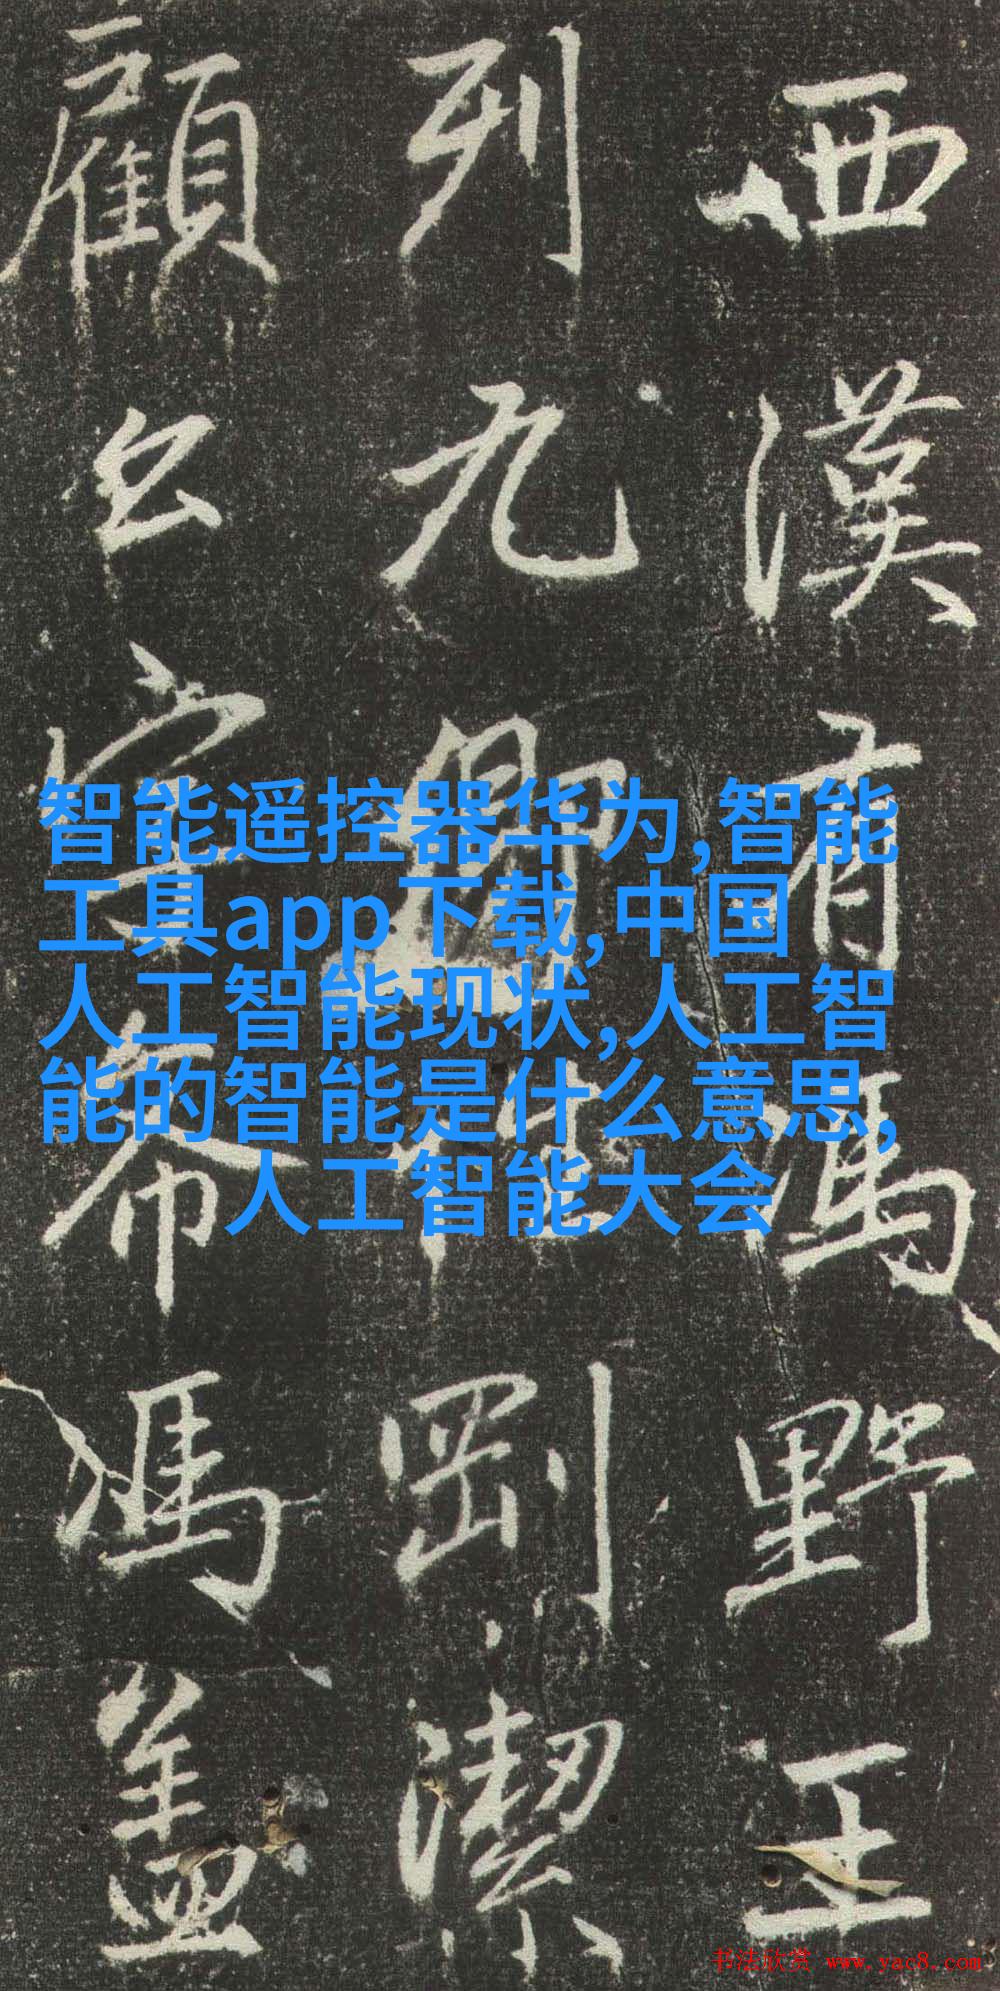 西漢有馮野王
列九卿剛潔
顧公字希馮蓋
智能遥控器华为,智能
工具app下载,中国
人工智能现状,人工智
能的智能是什么意思,
人工智能大会
书法欣赏 www.yac8.com